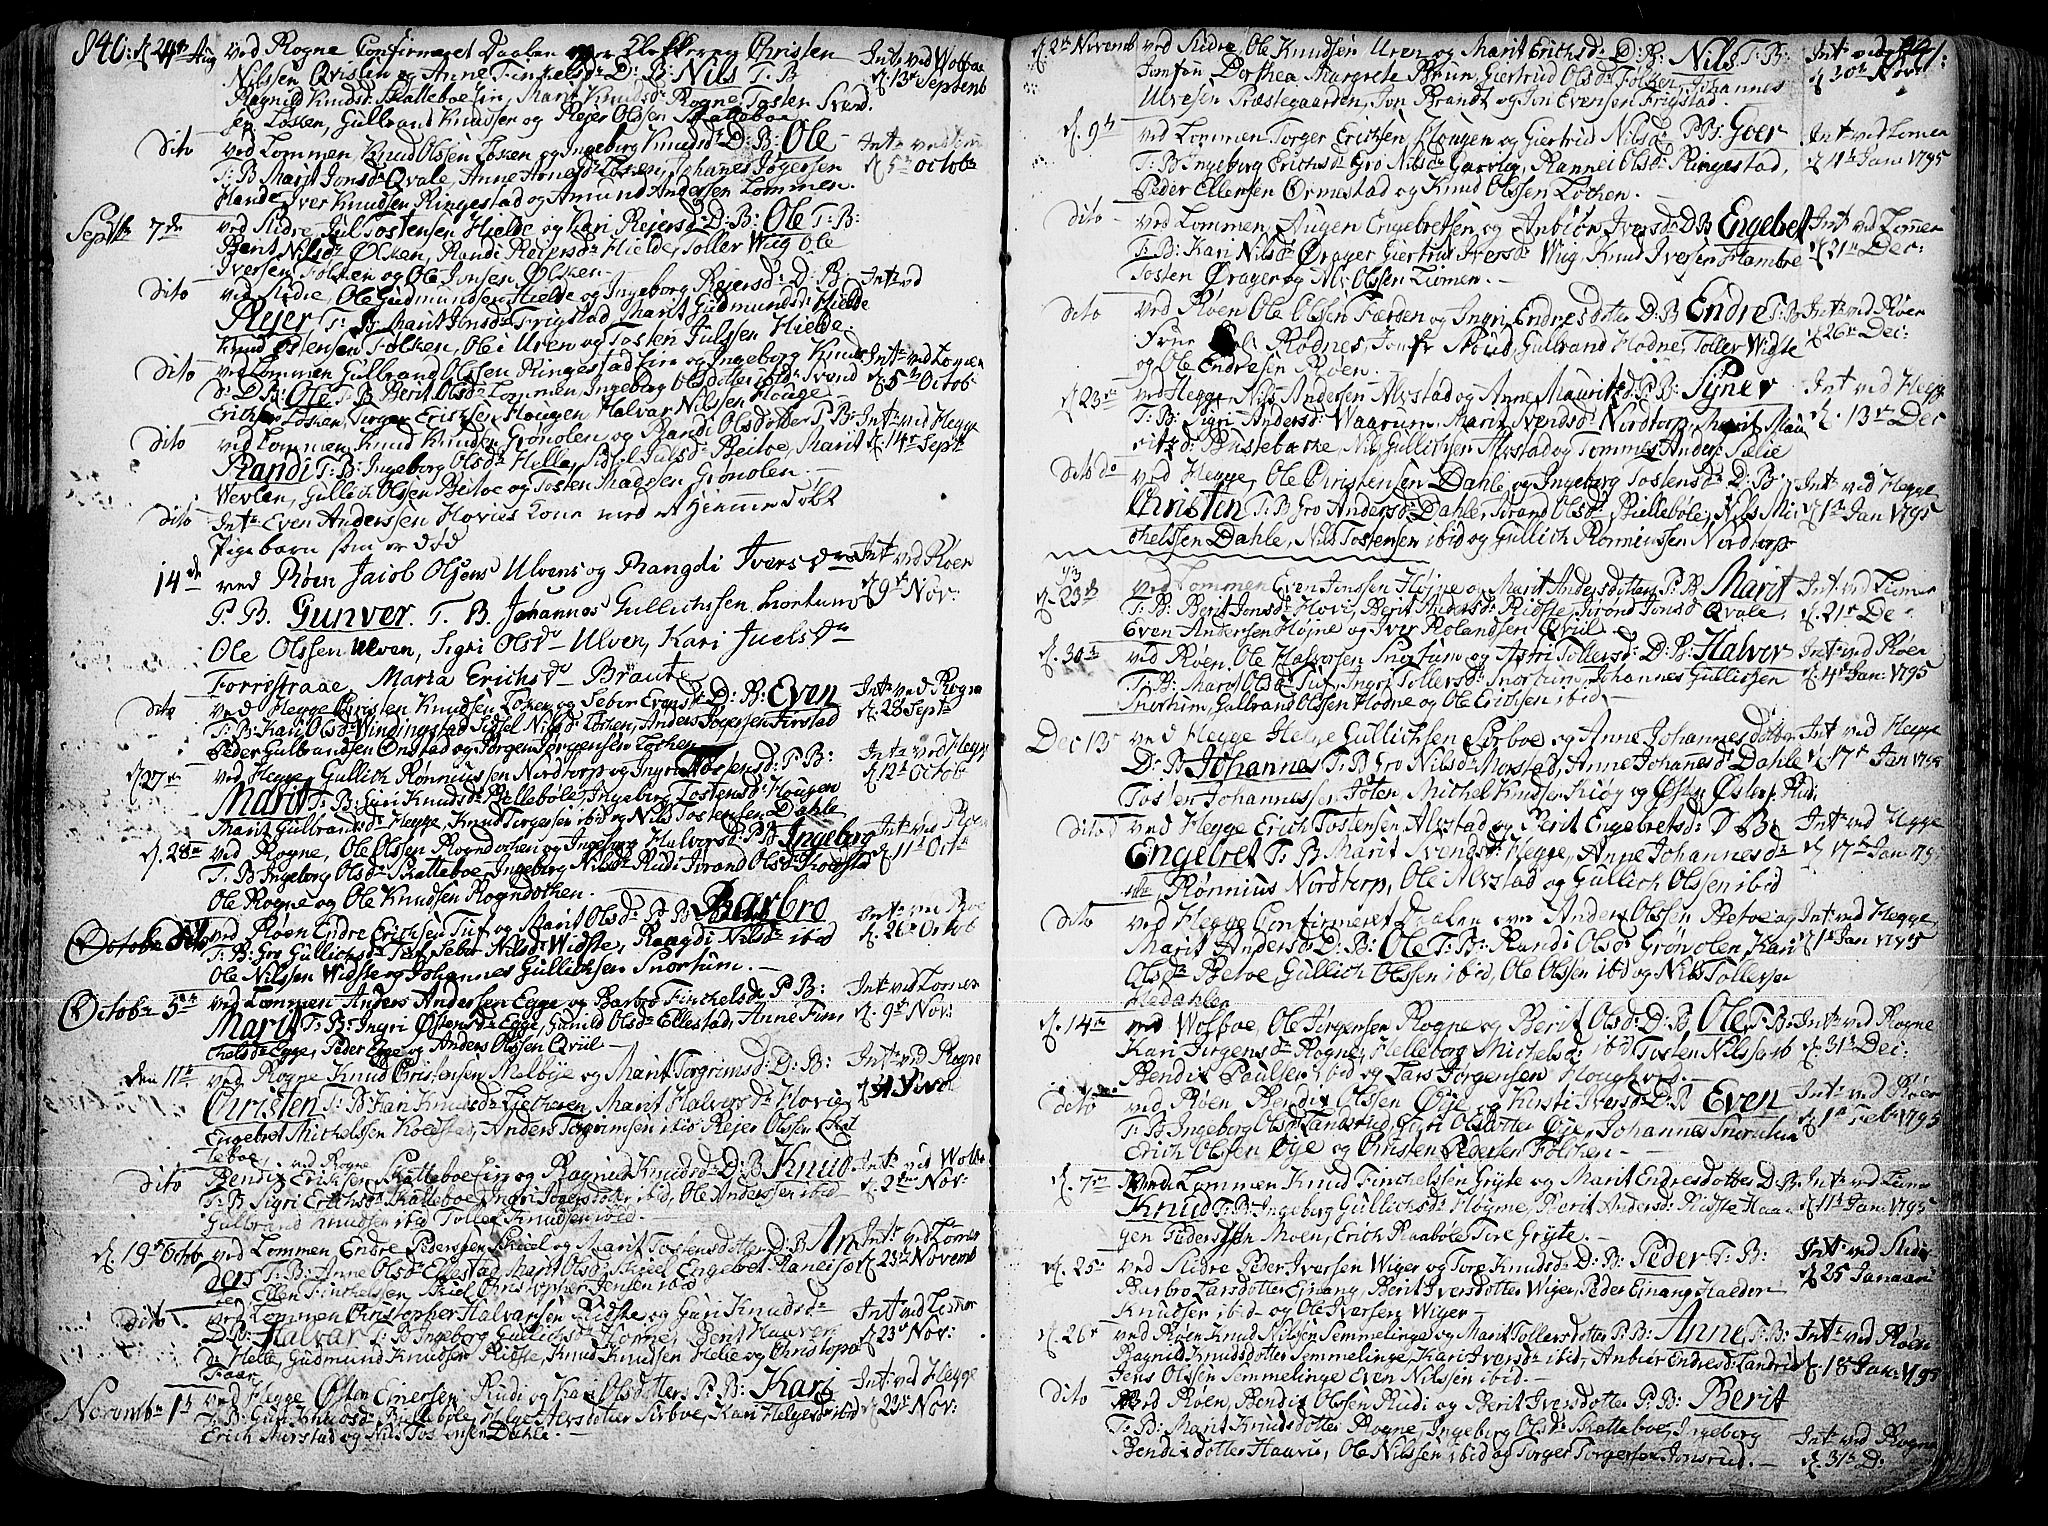 840: d. 24de Aug ved Rogne Confirmeret Daaben over Christen
Nilssen Qvislen og Anne Finkelsdr D: B: Nils T: B
Ragnid Knudsd: Skatteboe Mari Knudsd: Rogne Tosten Svend
sen Løken, Gulbrand Knudsen og Rejer Olssen Skatteboe
Intr ved Wolboe
d. 13de Septemb
Dito ved Lommen Knud Olssen Løken og Ingeborg Knudsd: D: B: Ole
T: B Marit Jonsdr Qvale, Anne Arnesdr Løken, Johannes
Hande, Iver Knudsen Ringestad og Amund Andersen Lommen.
d. 5te Octobr
Septbr 7de ved Slidre, Jul Tostensen Hielde og Kari Rejersd: D: B: Ole T: B:
Berit Nilsdr Ølken, Randi Rejersdr Hielde, Toller Wiig Ole
Iversen Folken og Ole Jonsen Ølken.
Dito ved Slidre, Ole Gudmundsen Hielde og Ingeborg Rejersd: D: B:
Rejer, T: B Marit Jonsdr Frigstad, Marit Gudmundsd: Hielde
Knud Tostensen Folken, Ole Uren og Tosten Julssen Hielde.
Intr vd
Dito ved Lommen Gulbrand Olssen Ringestad og Ingeborg Knuds
dr D: B: Ole T: B Berit Olsdr Lommen, Ingeborg Olsdotter ibid Svend
Erichsen Løken, Torger Erichsen Hougen Halvar Nilssen Houge
Intr ved Lomen
d. 5te Octob
Dito ved Lommen Knud Knudsen Grønolen og Randi Olsdotter P: B:
Randi T: B: Ingeborg Olsdr Helle, Sidsel Julsdr Beitoe, Marit
Wevlen, Gullich Olssen Beitoe og Tosten Madssen Grønolen.
Intr ved Hegge
d. 14de Septr
Dito Intr Even Anderssen Hovies Kone med et Hjemmedøbt
Pigebarn som er død
14de ved Røen Jacob Olsens Ulvens og Rangdi Iversdr
P. B. Gunver. T. B. Johannes Gullichssen Snortums
Ole Olssen Ulven, Sigri Olsdr Ulven, Kari Juelsdr
Forrestraae, Maria Erichsdr Braute
Intr ved Røen
d. 9de Nov:
Dito ved Hegge Christen Knudsen Løken og Seber Evensdr D: B: Even
T: B: Kari Olsdr Windingstad Sidsel Nilsdr Løken, Anders
Peder Gulbrandsen Onstad og Jørgen Jørgensen Løken
Intr ved Rogne
d. 28 Septr
d. 27de ved Hegge Gullich Rønniussen Nordtorp og Ingri Tostensd: P: B:
Marit T: B: Guri Knudsdr Bellebole, Ingeborg Tostensdr Hougen
Marit Gulbrandsdr Hegge, Knud Torgersen ibid og Nils Tostensen Dahle
Intr ved Hegge
d. 12te Octob
d. 28de ved Rogne, Ole Olssen Rogndokken og Ingeborg Halvorsd: P: B: Ingebrg
T: B Ingeborg Olsdr Skatteboe, Ingeborg Nilsdr Rudi, Trond Olsdr
Ole Rogne og Ole Knudsen Rogndokken.
Intr ved Røen
d. 11te Octr
Octobr Dito ved Røen Endre Erichsen Tuf og Marit Olsd: P: B Barbro
T: B: Gro Gullichsdr Tuf, Seber Nilsdr Widste, Rangdi Nilsdr ibid
Ole Nilssen Widste og Johannes Gullichsen Snortum.
d. 26de Octob
Octobr 5te ved Lommen Anders Andersen Egge og Barbro Finchelsdr P: B:
Marit T: B: Ingri Østensdr Egge, Gunild Olsdr Ellestad, Anne Fin
chelsdr Egge, Peder Egge og Anders Olssen Qviil.
Intr ved Lomen
d. 9de Nov:
den 11te ved Rogne Knud Christensen Melbye og Marit Torgrimsd: D: B:
Christen T: B: Kari Knudsdr Marit Halvorsdr Hovie
Engebret Michelssen Kolstad, Anders Torgrimsen ibid Rejer Olssen Skat
teboe,
Intr ved Rogne
Dito ved Rogne
Bendix Erichsen Skatteboe og Ragnid Knudsdr D: B Knud
T: B Sigri Erichsdr Skatteboe, Ingri ibid, Ole Anderssen ibid
Gulbrand Knudsen ibid Tollef Knudsen ibid.
Intr ved Wolb.
d. 2den Nov:
d. 19de Octob ved Lommen Endre Pederssen Skiel og Marit Tostensdotter D: B An
ders T: B: Anne Olsdr Ellestad, Marit Olsdr Skiel Engebret
Ellen Finchelssen, Skiel Christopher Jensen ibid
Intr ved Lomen
d. 23de Novemb
Dito ved Lommen Christopher Halvarsen Ridste og Guri Knudsdr
D: B: Halvar T: B Ingeborg Gullichsdr Berit Haaven
dr Helle, Gudmund Knudsen Ridste, Knud Knudsen Helle og Christoph
Faar
Intr ved Lomen
d. 23de Nov:
Novembr 1te ved Hegge Østen Einersen Rudi og Kari Olsdotter P: B: Kari
T: B: Guri Knudsdr Bellebole, Helge Sirboe, Kari Helgesdr ibid
Erich Myrstad og Nils Tostensen Dahle.
Intr ved Hegge
d. 23de Nov:
841.
d. 2de Novemb ved Slidre, Ole Knudsen Uren og Marit Erichsdr D: B: Nils T: B:
Jomfru Dorthea Margrete Brun, Giertrud Olsdr Folken, Johannes
Ulvesen Præstegaarden, Jon Brandt og Jon Evensen Frigstad.
Intr ved
d. 30te Nov
d. 9de ved Lommen Torger Erichsen Hougen og Giertrud Nilsdr P: B: Goer
T: B: Ingeborg Erichsdr Gro Nilsdr Rannei Olsdr Ringestad,
Peder Ellensen Ørmestad og Knud Olssen Løken.
Intr ved Lomen
d. 4de Jan: 1795
Dito ved Lommen, Augen Engebretsen, og Anbiør Iversdr D: B Engebret
T: B: Kari Nilsdr Drager Giertrud Iversdr Wiig Knud Iversen Hambre
Tosten Drager og Olssen Liomen.
Intr ved Lomen
d. 21de Dec:
Dito ved Røen Ole Olssen Færden og Ingri Endresdotter D: B Endre T: B
Frue Rodnes, Jomfr Gulbrand Hodne, Toller Widste
og Ole Endresen Røen.
Intr ved Røen
d. 26de Dec:
d. 23de ved Hegge Nils Andersen Alvstad og Anne Mauritsdr P: B: Signe
T: B: Sigri Andersdr Waarum, Marit Svendsdr Nordtorp, Marit Mau
ritzd: Bustebakke, Nils Gullichsen Alvstad og Tommes Anders: Sælie
Intr ved Hegge
d. 13de Dec
Dito do ved Hegge, Ole Christensen Dahle og Ingeborg Tostensdr D: B:
Christen T: B Gro Andersdr Dahle, Olsdr Bellebole, Nils Mi
chelssen Dahle, Nils Tostensen ibid og Gullich Rønniussen Nordtorp
Intr ved Hegge
d. 1te Jan 1795
d. 23de ved Lommen Even Jonssen Højne og Marit Andersdotter P: B Marit
T: B: Berit Jonsdr Hovi, Berit Andersdr Ridste, Trond Jonsd Qvale,
Even Andersen Højne og Iver Rolandsen Qviil.
Intr ved Liomen
d. 21de De
d. 30te ved Røen Ole Halversen Snortum og Astri Tollersd: D: B: Halver
T: B: Marit Olsdr Tuf, Ingri Tollersdr Snortum, Johannes Gullichsen
Snortum, Gulbrand Olssen Hodne og Ole Erichsen ibid
Intr ved Røen
d. 4de Jan: 1795
Dec 13de ved Hegge Helge Gullichsen Sirboe og Anne Johannesdotter
D: B Johannes T: B Gro Nilsdr Morstad, Anne Johannesdr Dahle
Tosten Johannessen Joten Michel Knudsen og Østen Østens: Rudi
Intr ved Hegge
d. 17de Jan 1795
Dito ved Hegge Erich Tostensen Alvstad og Berit Engebretsd: D B:
Engebret T: B Marit Svendsdr Hegge, Anne Johannesdr
Rønnius Nordtorp, Ole Alvstad og Gullich Olssen ibid
Intr ved Hegge
d. 17de Jan: 1795
Dito ved Hegge Confirmeret Daaben over Anders Olssen Beitoe og
Marit Andersdr D: B: Ole T: B: Randi Olsdr Grønolen, Kari
Olsdr Beitoe, Gullich Olssen ibid, Ole Olssen ibid og Nils Tollefsen
Hedahlen
Intr ved Hegge
d. 1te Jan 1795
d. 14de ved Wolboe, Ole Jørgensen Rogne og Berit Olsd: D: B. Ole T: B:
Kari Jørgensdr Rogne, Helleborg Michelsd: ibid Tosten Nilssen ib
Bendix Paulsen ibid og Lars Jørgensen
Intr ved Rogne
d. 31te Dec:
Dito ved Røen Bendix Olssen Øje og Kirsti Iversdr D: B Even
T: B Ingeborg Olsdr Sigri Olsdotter Øje, Johannes Snortum
Erich Olssen Øje og Christen Pedersen Følchen.
Intr ved Røen
d. 1te Febr 1795
d. 7de ved Lommen Knud Finchelssen Gryte og Marit Endresdotter D: B.
Knud T: B: Ingeborg Gullichsdr Høgne, Berit Andersdr Ridste Haa
gen Pederssen Moen, Erich Raabøle Tore Gryte.
Intr ved Liome
d. 11te Jan: 1795
d. 25de ved Slidre Peder Iversen Wiger og Tore Knudsdr D: B: Peder T: B:
Barbro Larsdotter Einang, Berit Iversdotter Wiger, Peder Einang Halder
Knudsen ibid og Ole Iversen Wiger
Intr ved Slidre
d. 25 Januari
d. 26de ved Røen Knud Nilssen Semmelinge og Marit Tollersdotter P: B: Anne T: B:
Ragnid Knudsdotter Semmelinge, Kari Iversdr ibid, Anbiør Endresdr
Jens Olssen Semmelinge Even Nilssen ibid.
Intr ved Røen
d. 18de Jan: 1795
Dito ved Røen, Bendix Olssen Rudi og Berit Iversdotter P: B: Berit
T: B: Marit Knudsdotter Rogne, Ingeborg Olsdr Skatteboe, Ingeborg
Bendixdotter Haavi, Ole Nilssen ibid og Torger Torgersen Jonsrud.
Intr ved Rogne
d. 31te D: